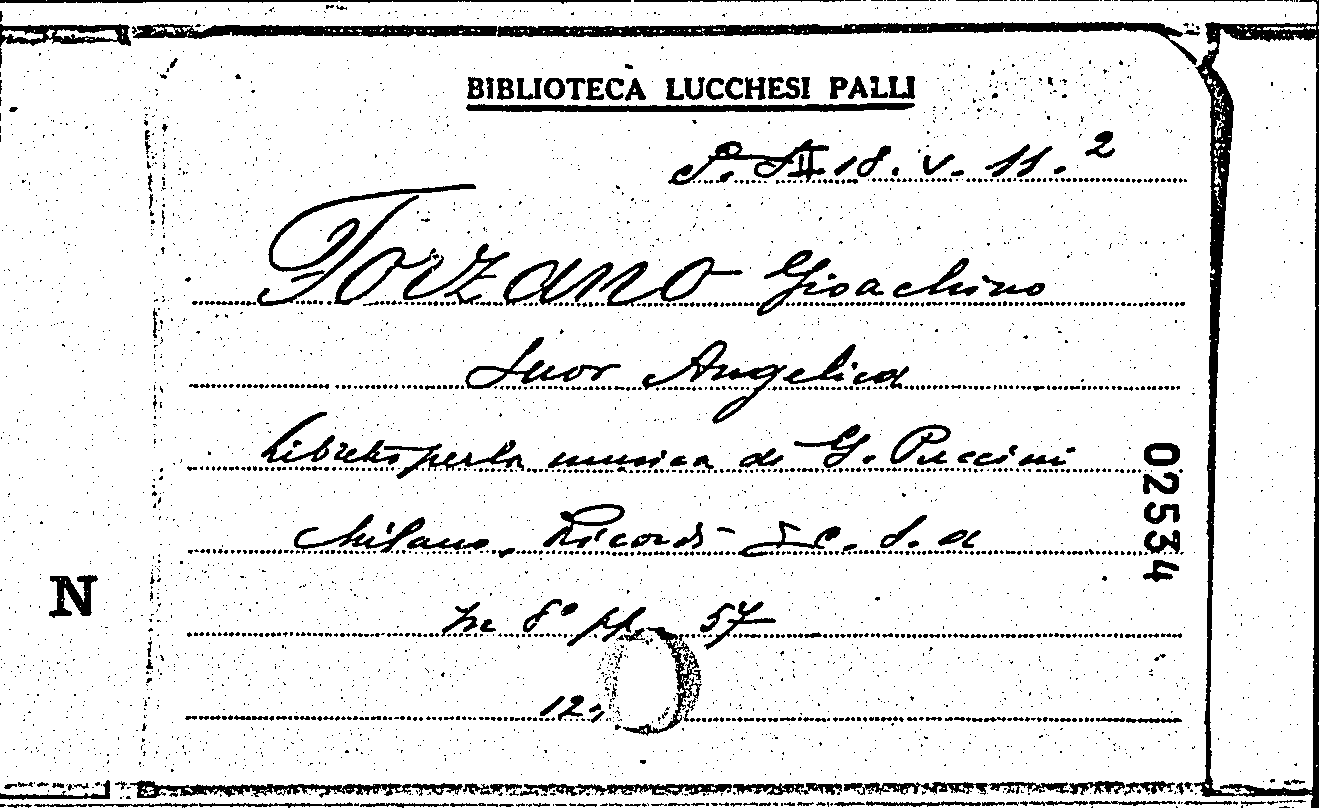 BIBLIOTECA LUCCHESI PALLI
18. V. 11.²
Forzano Gioachino
Suor Angelica
Libretto per la musica di G. Puccini
Milano, Ricordi & C. s. a
In 8° pp. 57
12.
02534
N